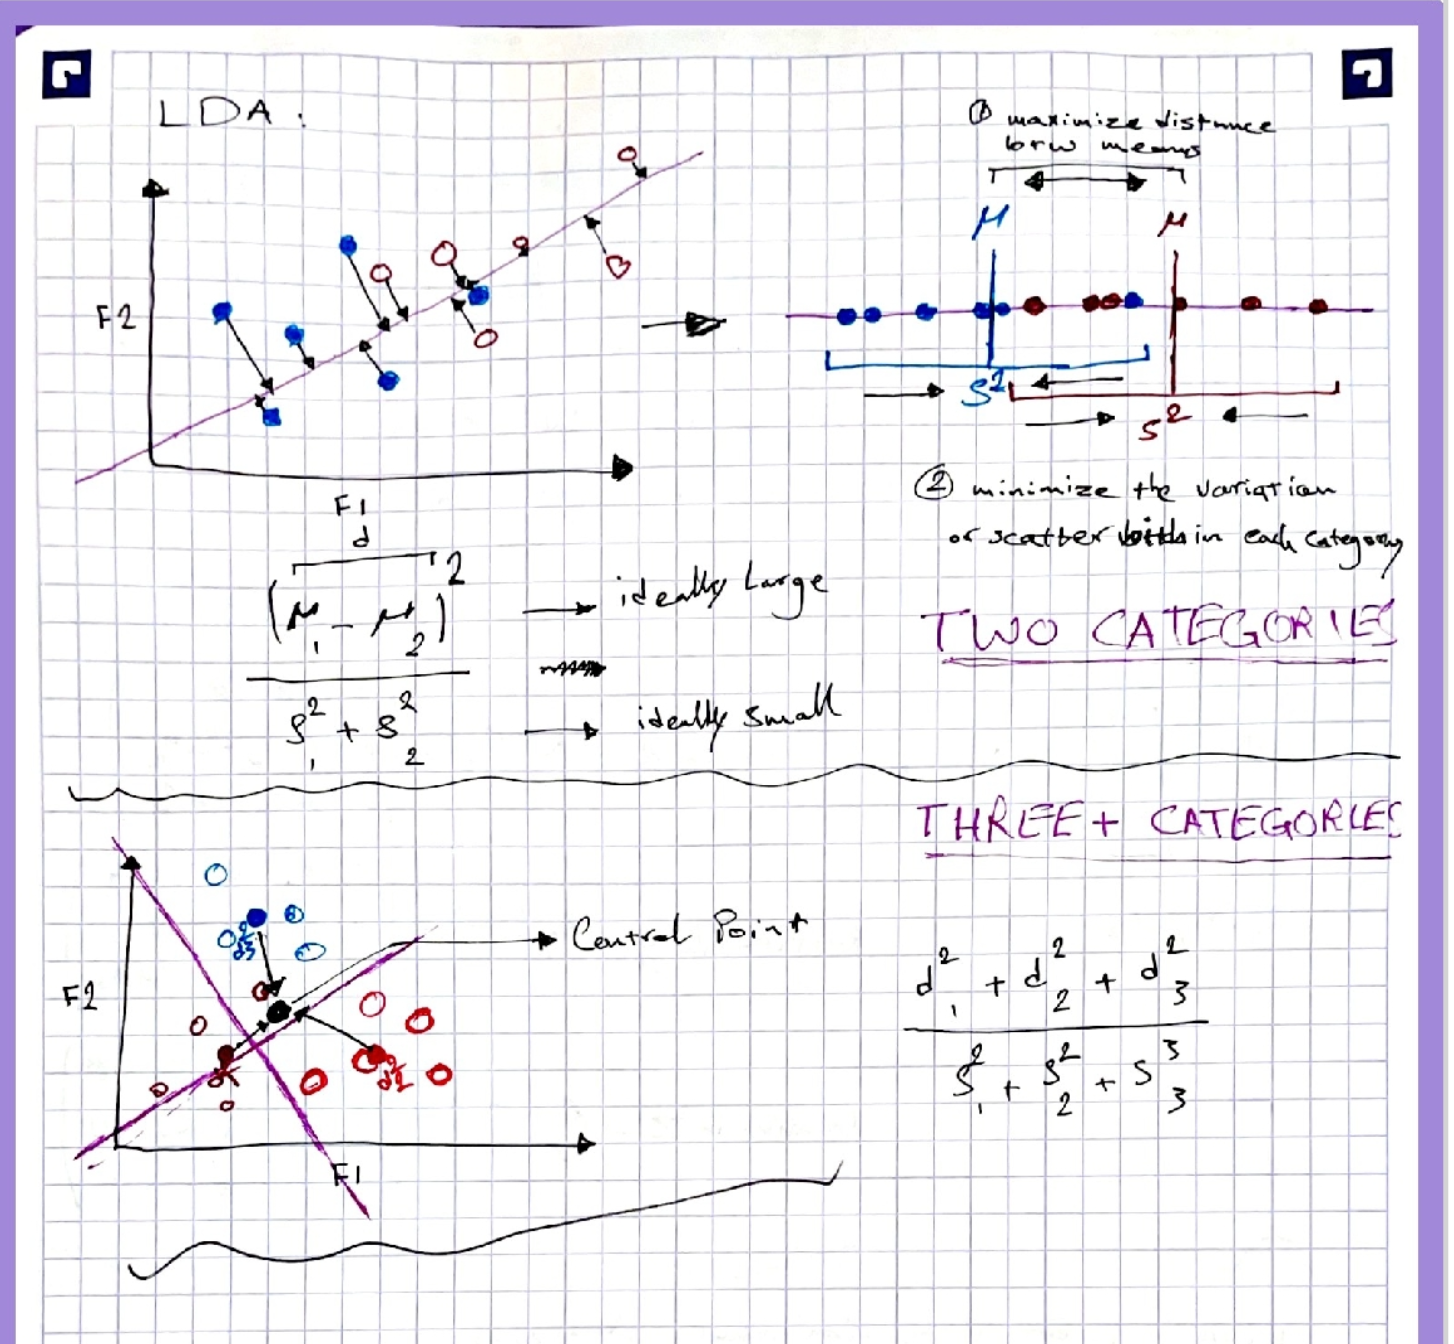 LDA:
① maximize distance
btw means
μ μ
F2
S² S²
F1
② minimize the variation
or scatter within each category
d
(μ₁ - μ₂)²
S₁² + S₂²
→ ideally Large
→ ideally small
TWO CATEGORIES
THREE+ CATEGORIES
Central Point
F2
d3²
d2²
F1
d₁² + d₂² + d₃²
S₁² + S₂² + S₃³